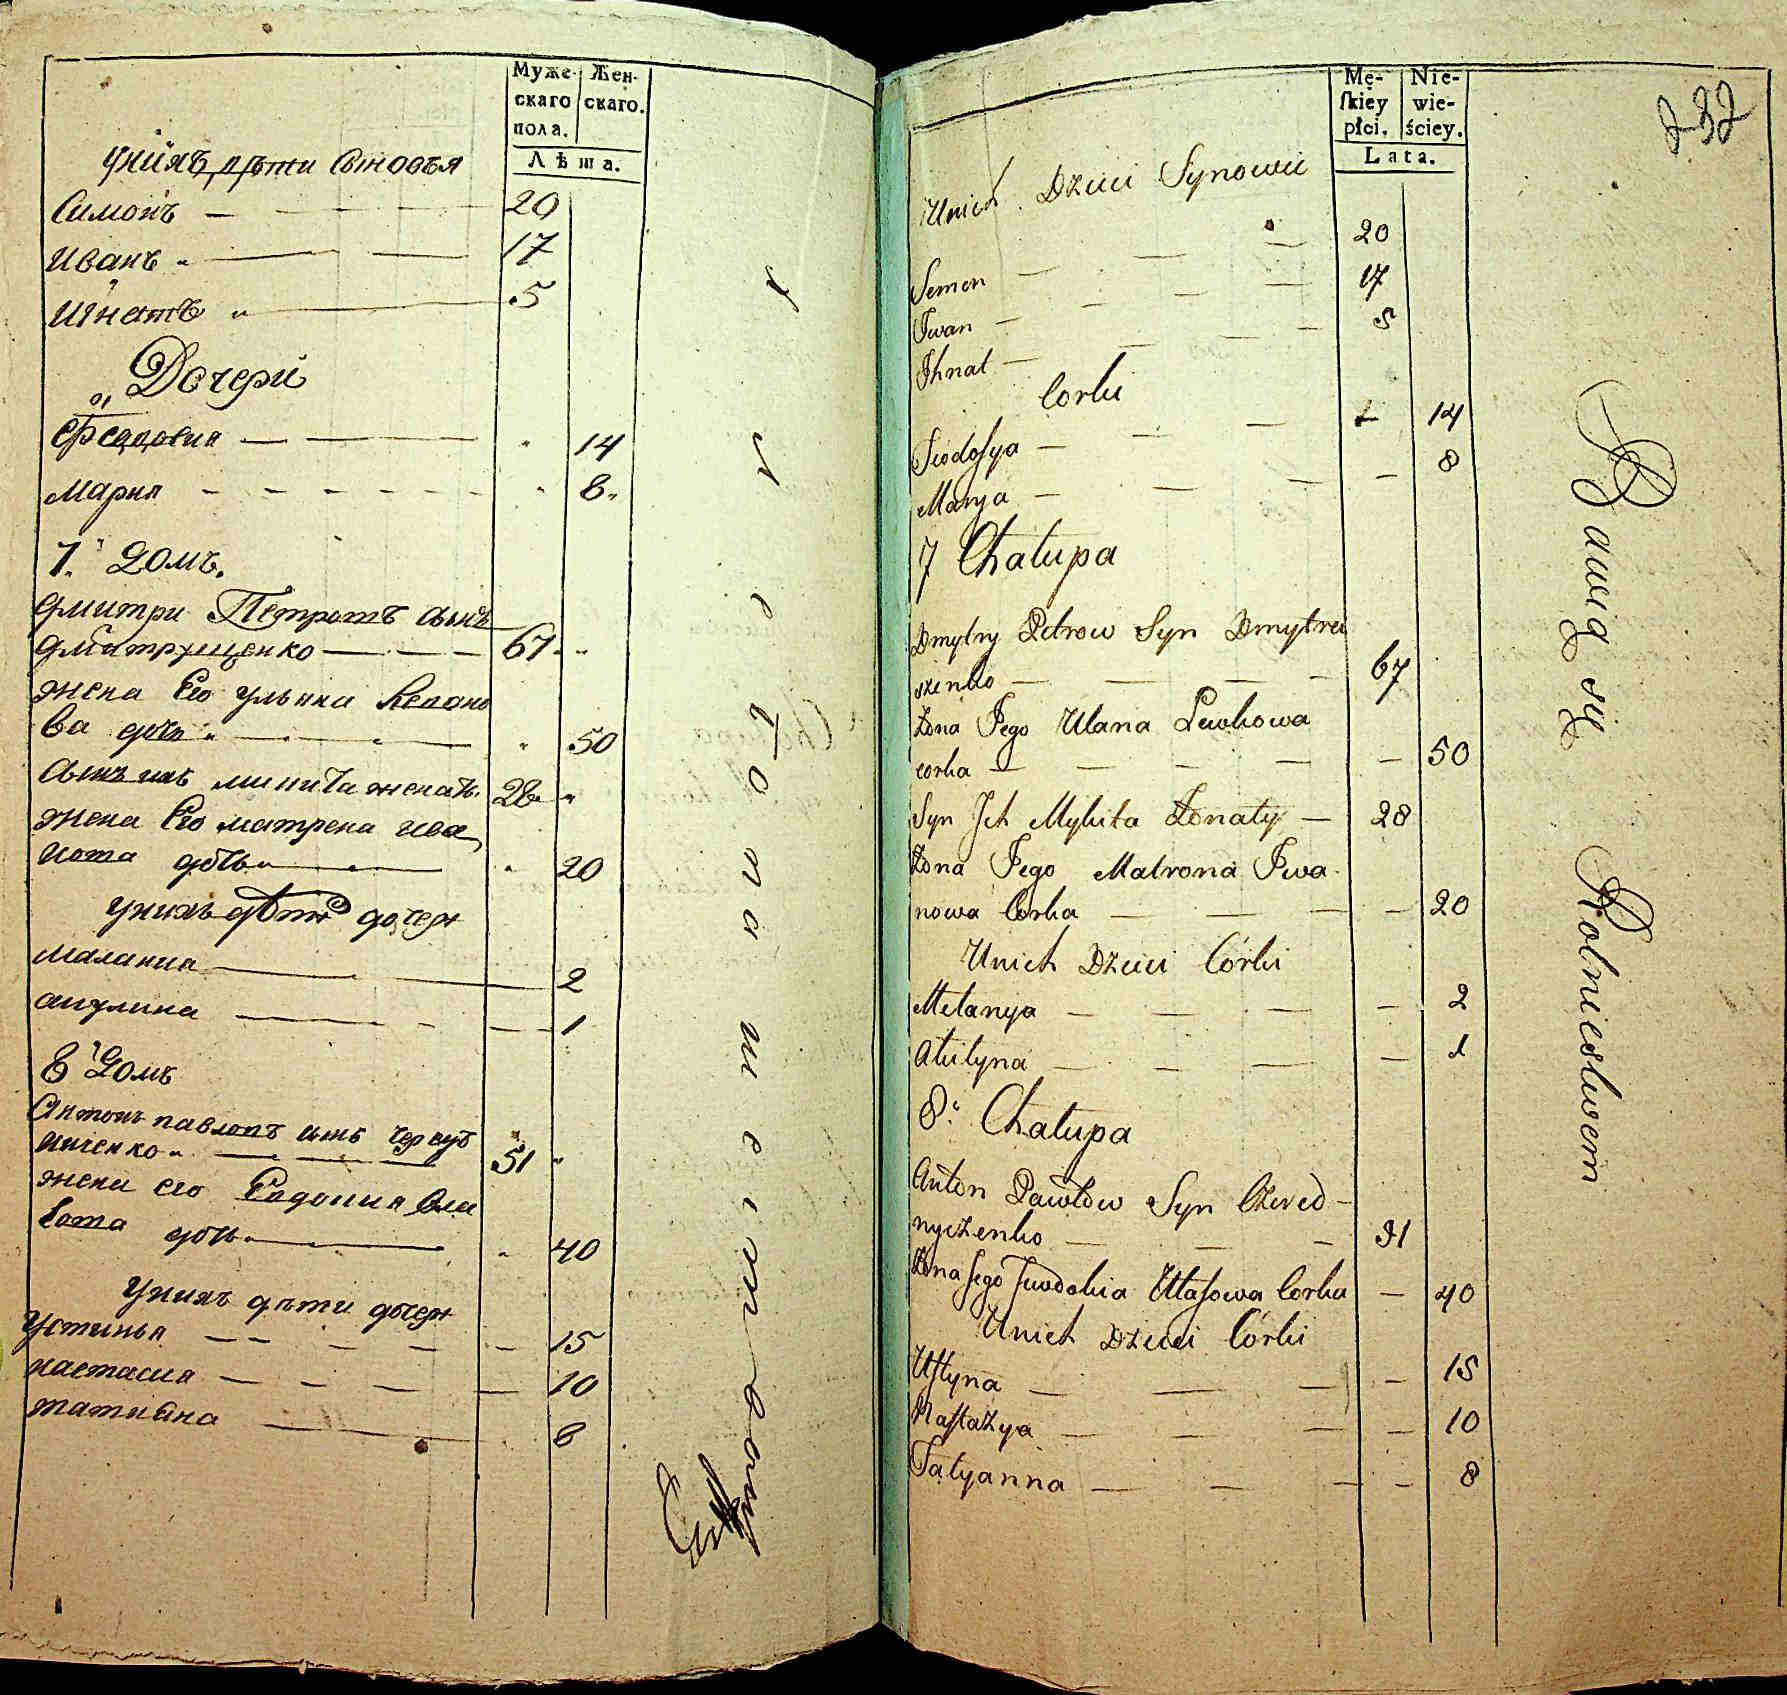 Муже-
скаго
пола.
Жен-
скаго.
Лѣта.
уних дѣти сыновья
Симонъ 20
Иванъ 17
Игнатъ 5
Дочери
Феодосия 14
Мария 8
7. домъ.
Дмитри Петровъ сынъ
Дмитрущенко 67
жена Его Ульяна
ва дочь 50
сынъ ихъ Микита женатъ 28
жена Его Матрена Ива
нова дочь 20
уних дѣти дочери
Маланиа 2
акулина 1
8 домъ
Антонъ павловъ сынъ Чередъ
ниченко 51
жена его Евдокия Вла
сова дочь 40
уних дѣти дочери
Устинья 15
настасия 10
татиана 8
Mę-
ſkiey
płci.
Nie-
wie-
ściey.
Lata.
232
Unich Dzieci Synowie
20
Semen 17
Iwan 5
Ihnat
Corki
14
Fiodoſya 8
Marya
7 Chałupa
Dmytry Petrow Syn Dmytru
szenko 67
Żona Jego Ulana Lewkowa
corka 50
Syn Ich Mykita Żonaty 28
Żona Jego Matrona Iwa-
nowa Corka 20
Unich Dzieci Córki
Melanya 2
Akulyna 1
8. Chałupa
Anton Pawłow Syn Czered-
nyczenko 51
Żona Jego Jewdokia Własowa Corka 40
Unich Dzieci Córki
Uſtyna 15
Naſtazya 10
Tatyanna 8
Bawią się Rolnictwem